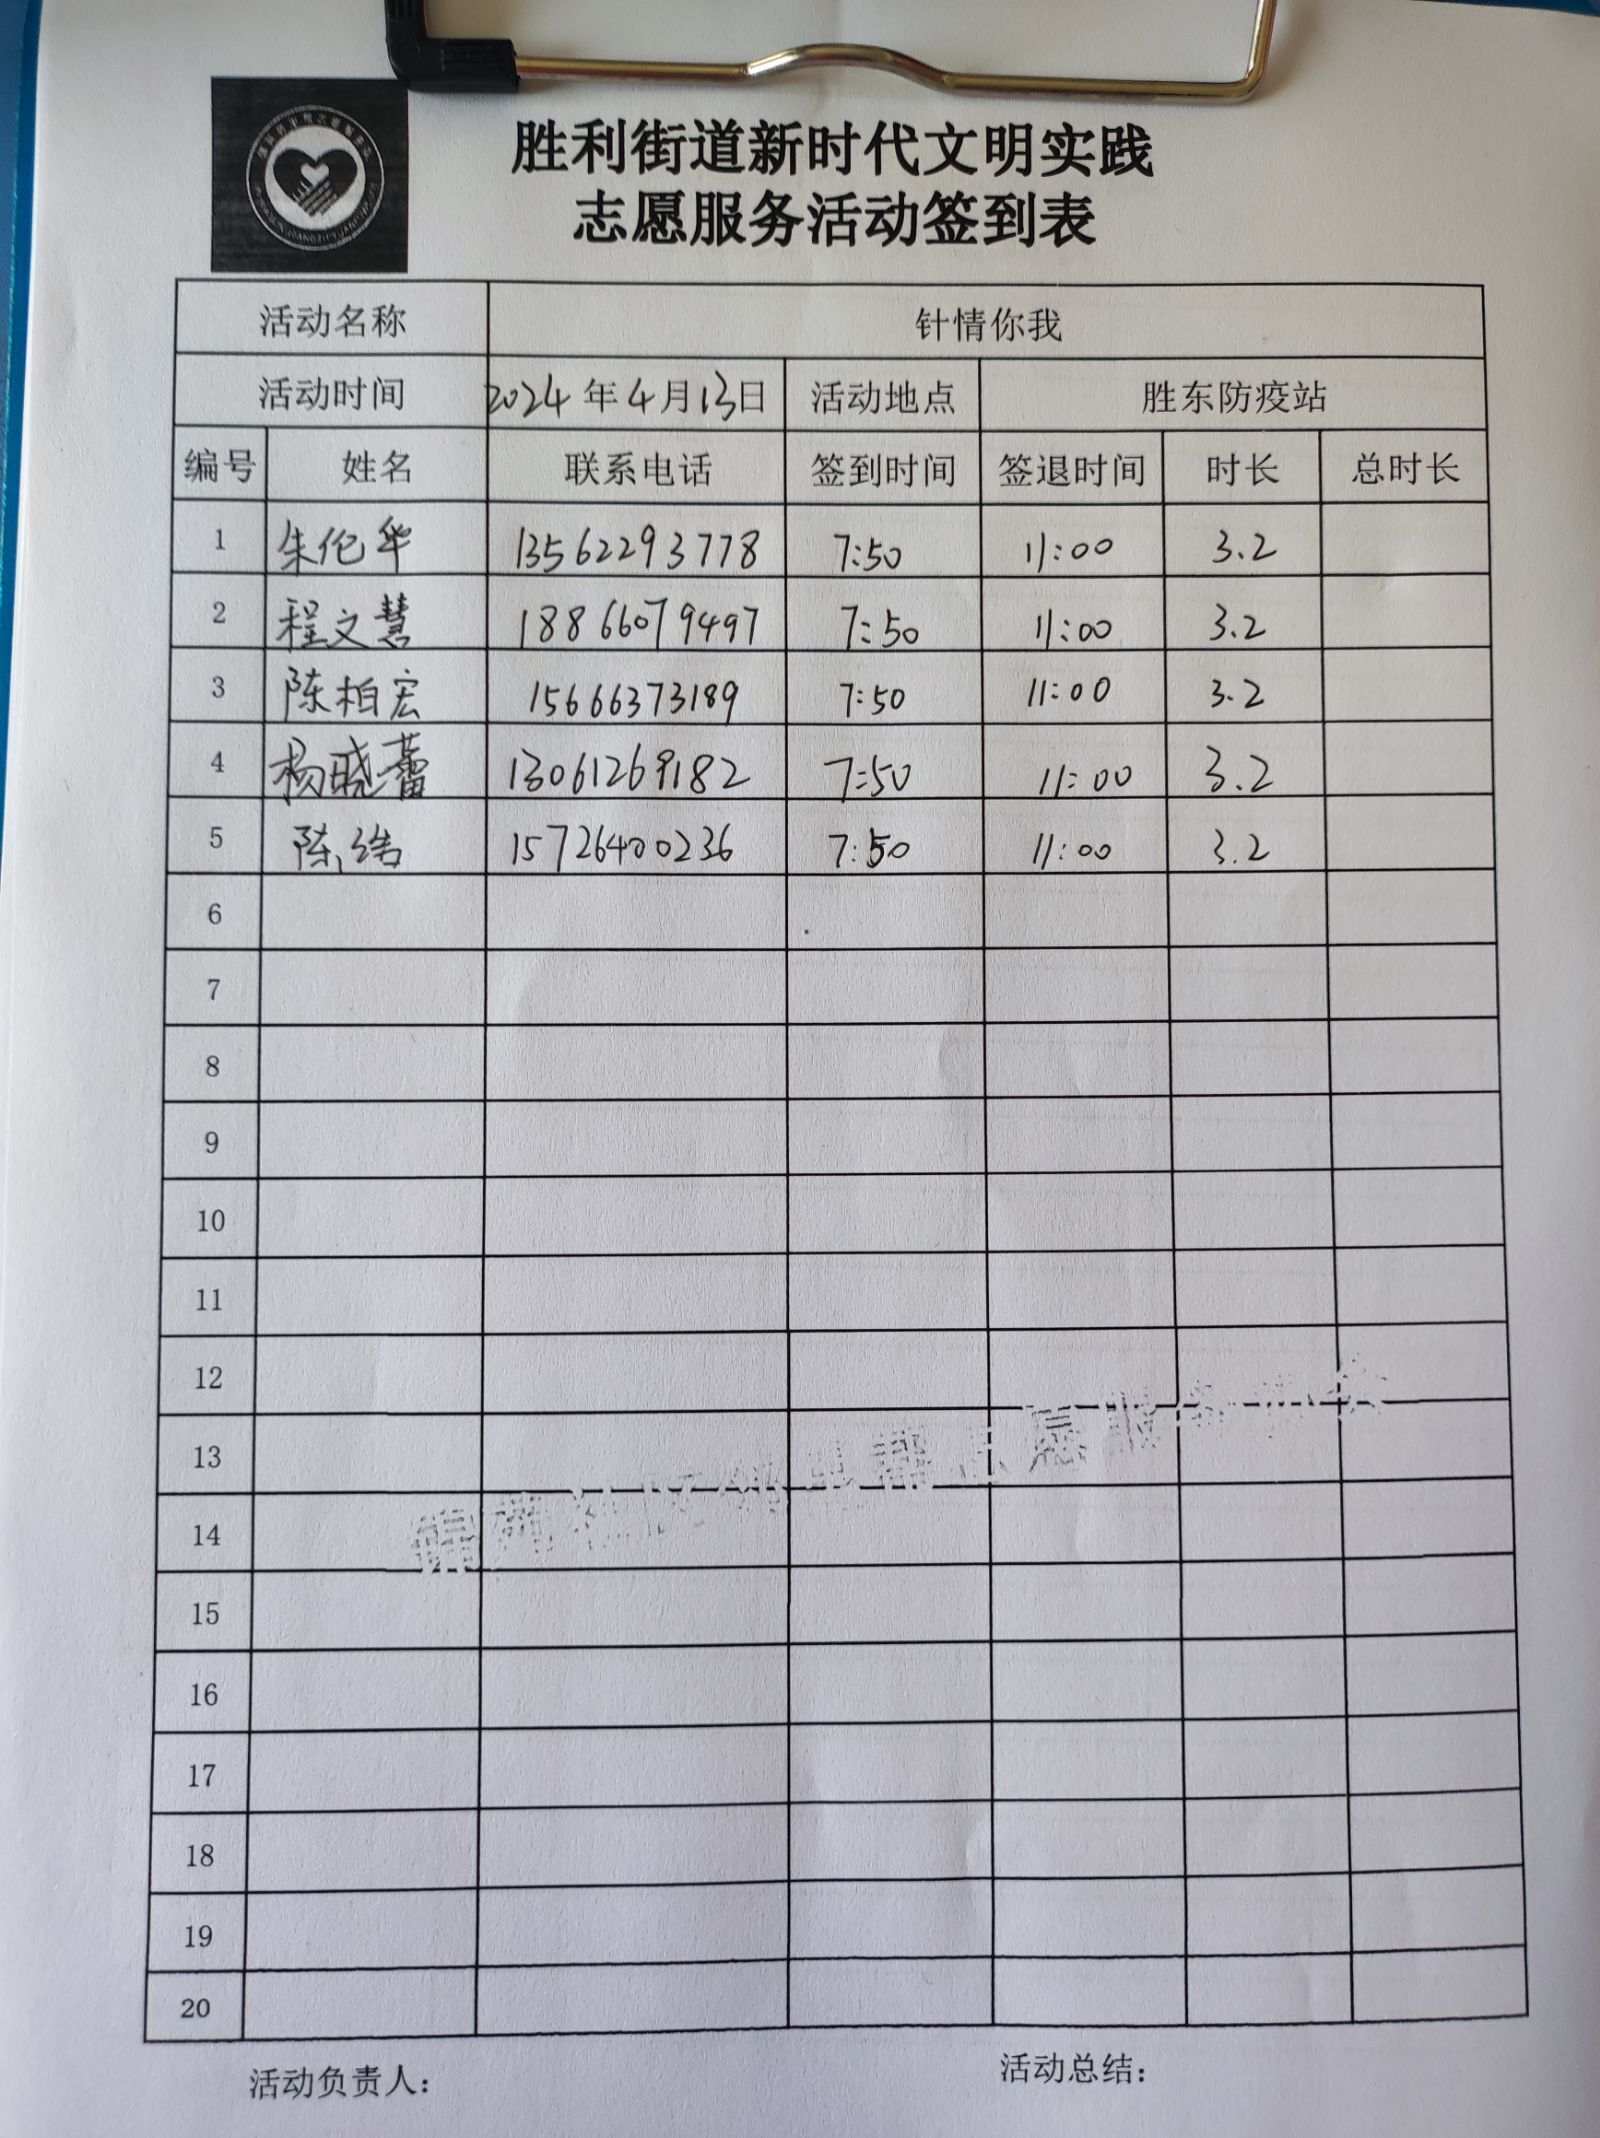 胜利街道新时代文明实践
志愿服务活动签到表
活动名称 针情你我
活动时间 2024年4月13日 活动地点 胜东防疫站
编号 姓名 联系电话 签到时间 签退时间 时长 总时长
1 朱伦华 13562293778 7:50 11:00 3.2
2 程文慧 18866079497 7:50 11:00 3.2
3 陈柏宏 15666373189 7:50 11:00 3.2
4 杨晓蕾 13061269182 7:50 11:00 3.2
5 陈 15726400236 7:50 11:00 3.2
6
7
8
9
10
11
12
13
14
15
16
17
18
19
20
活动负责人： 活动总结：